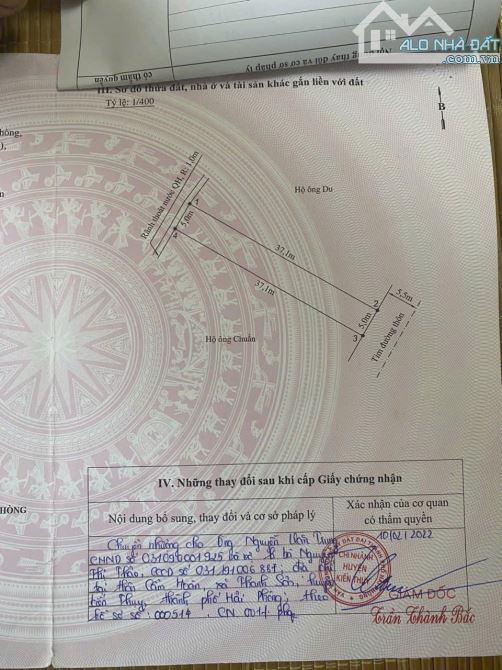 ALO NHÀ ĐẤT
Alonhadat.com.vn
có thẩm quyền
Nội dung thay đổi và cơ sở pháp lý
III. Sơ đồ thửa đất, nhà ở và tài sản khác gắn liền với đất
Tỷ lệ: 1/400
B
Rãnh thoát nước QH, R: 1,0m
Hộ ông Du
1
5,0m
4
37,1m
37,1m
2
5,5m
5,0m
3
Tim đường thôn
Hộ ông Chuẩn
HÒNG
IV. Những thay đổi sau khi cấp Giấy chứng nhận
Nội dung bổ sung, thay đổi và cơ sở pháp lý
Xác nhận của cơ quan
có thẩm quyền
Chuyển nhượng cho ông Nguyễn Văn
CMND số và Nguyễn
Thị Thảo, CCCD số
tại thôn Cẩm Hoàn, xã Thanh Sơn, huyện
Kiến Thụy, thành phố Hải Phòng; theo
hồ sơ số 000514
10/02/2022
CHI NHÁNH
HUYỆN
KIẾN THỤY
GIÁM ĐỐC
Trần Thành Bắc